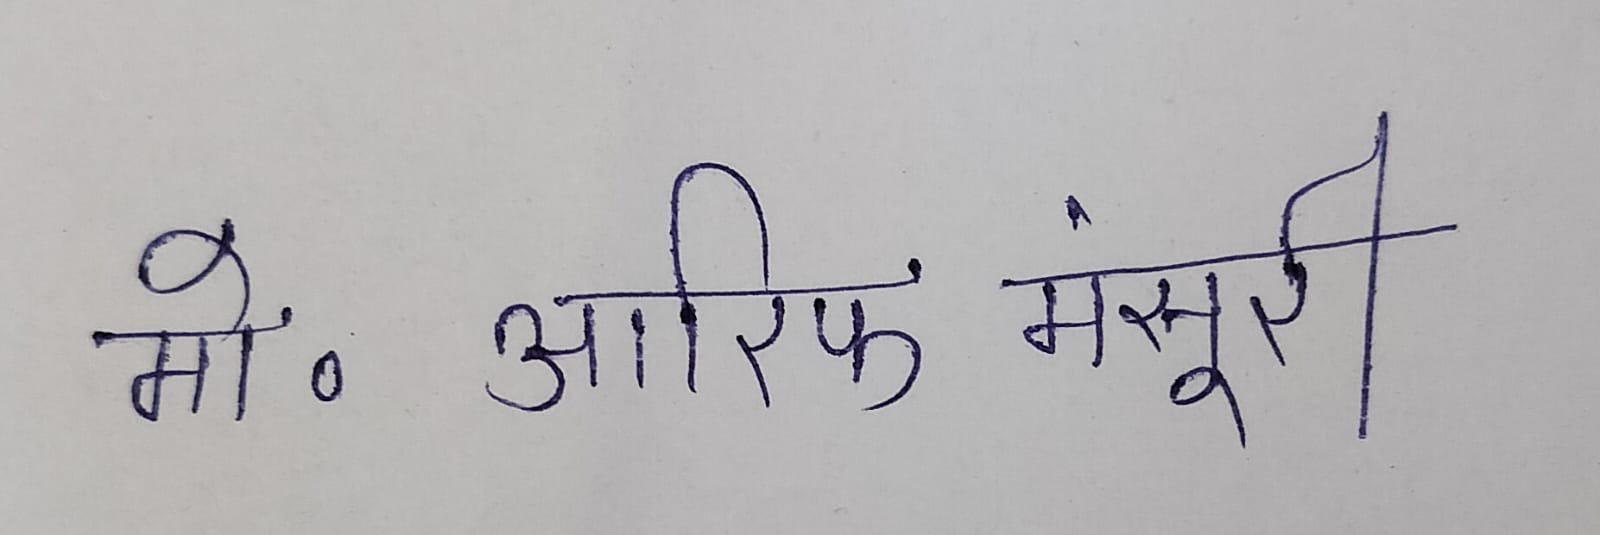 मो॰ आरिफ मंसूरी